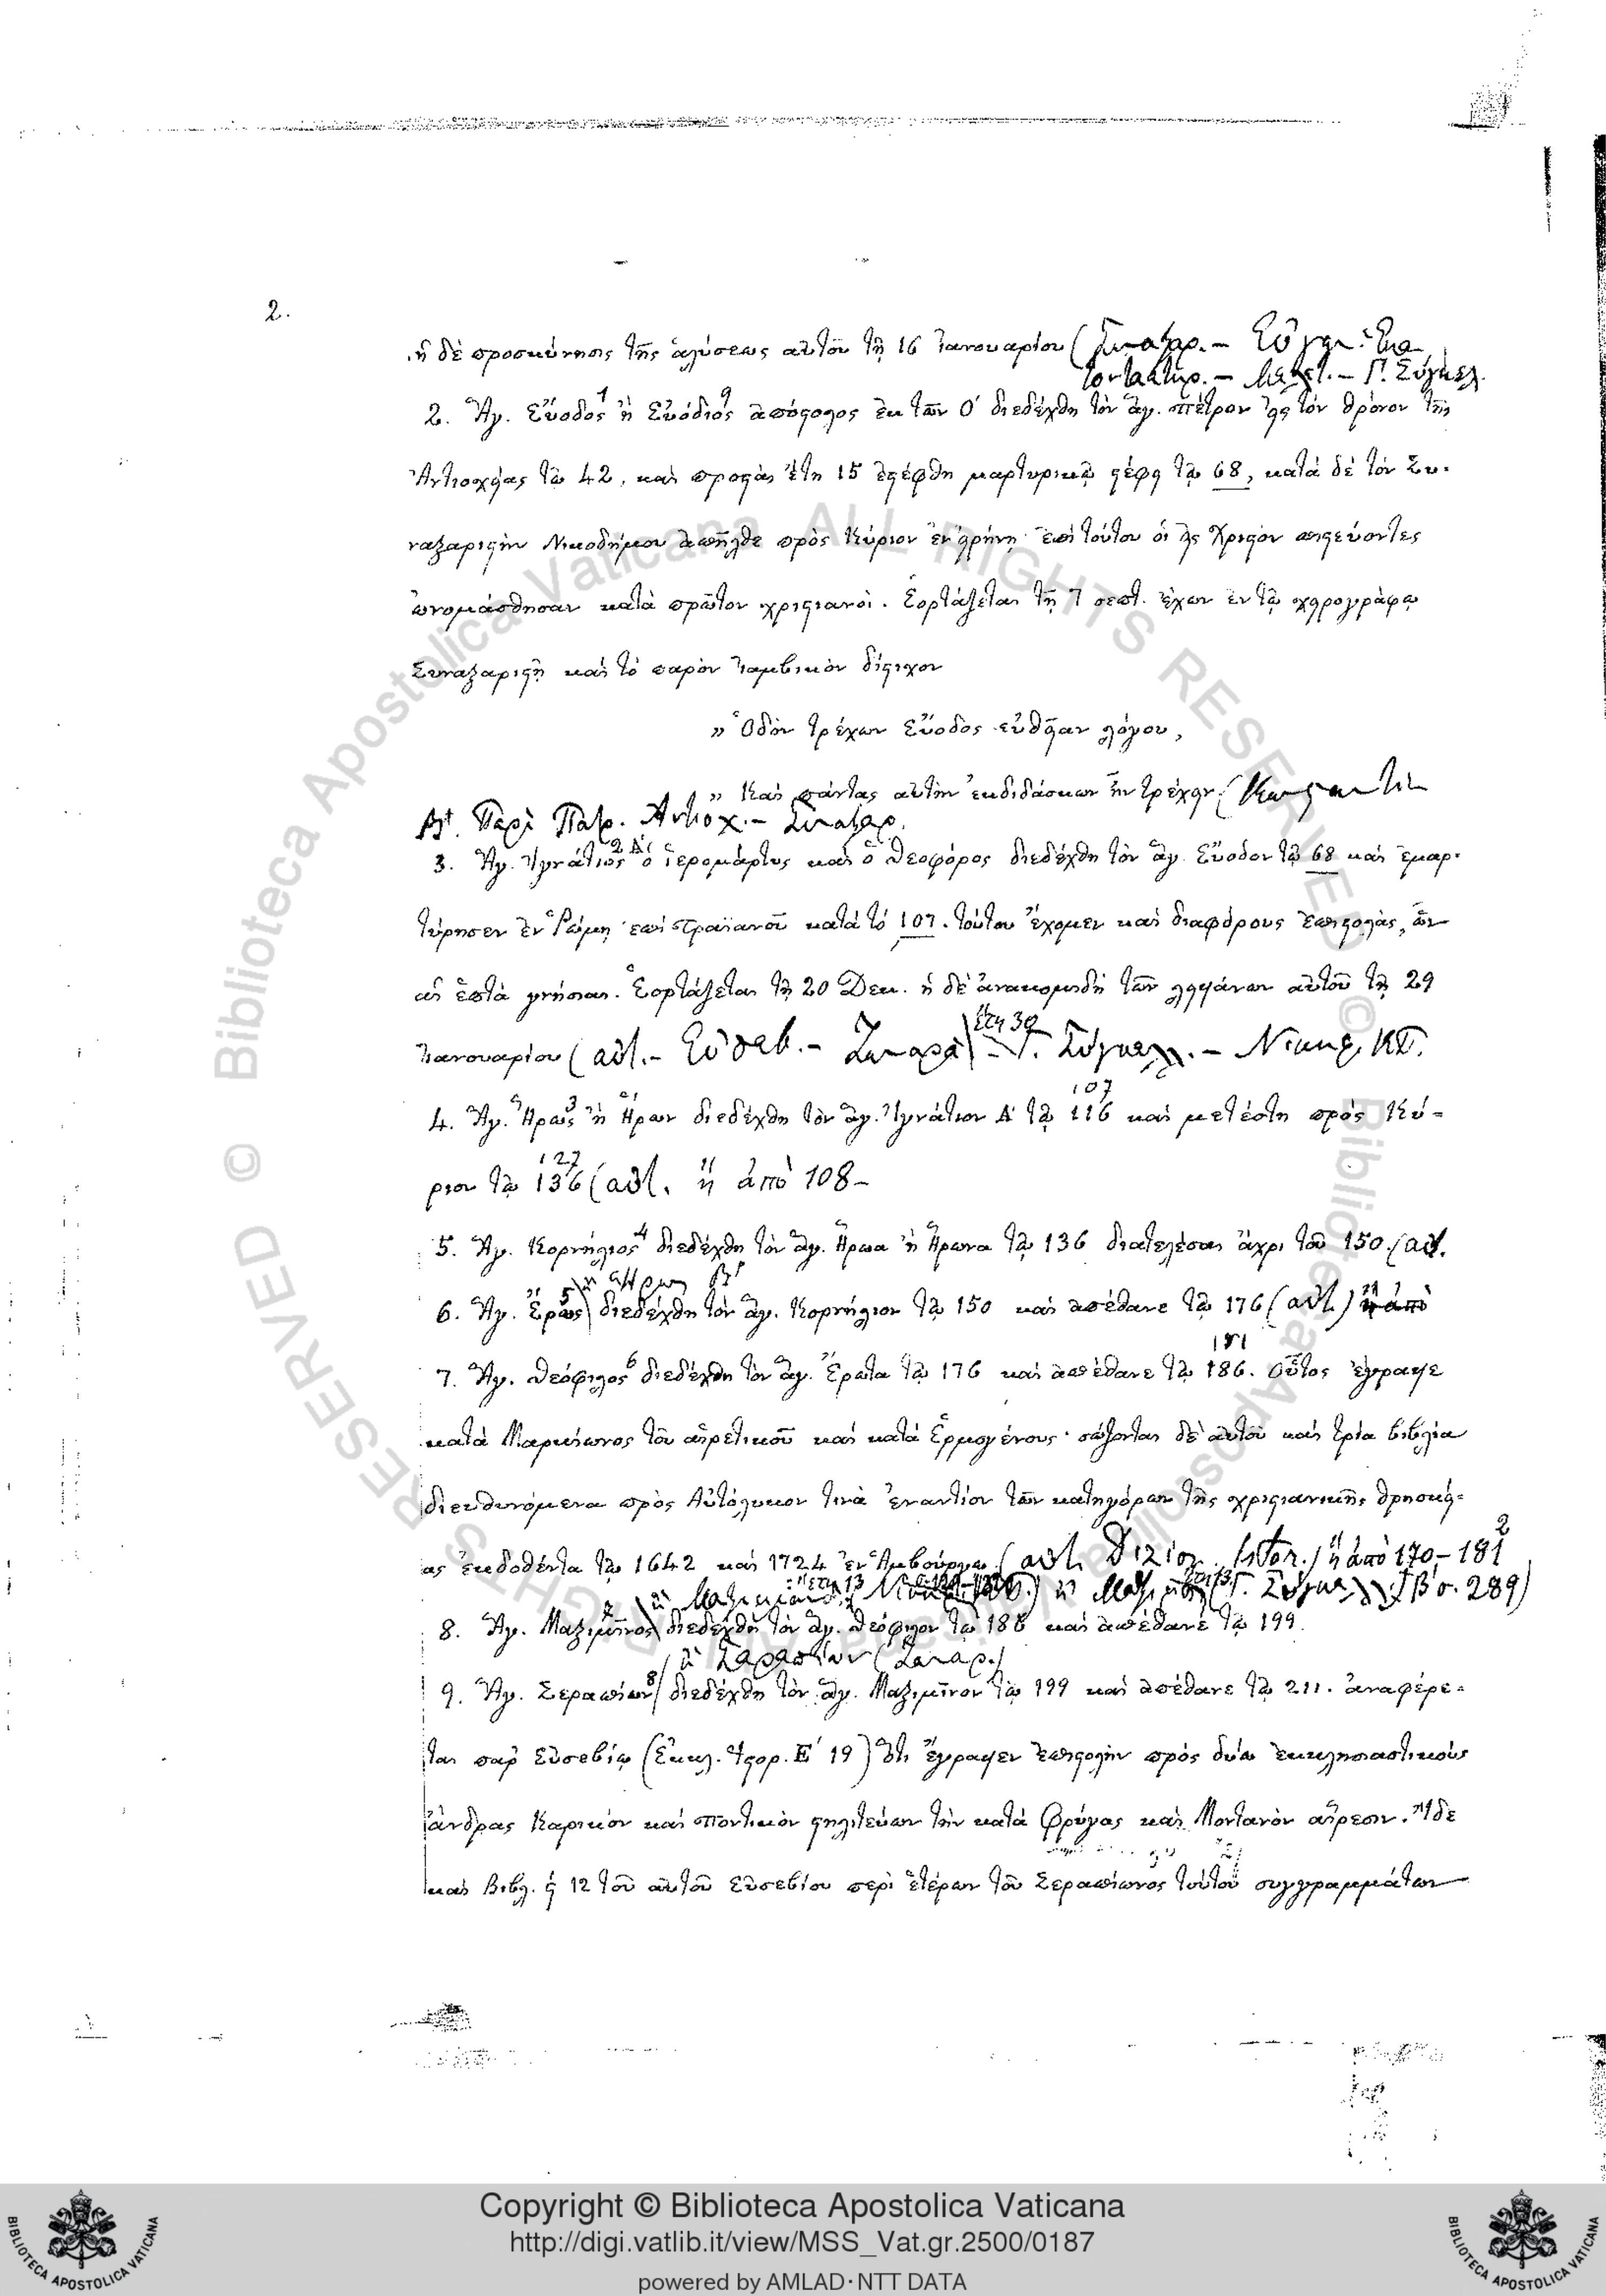 2.
ἡ δὲ προσκύνησις τῆς ἁλύσεως αὐτοῦ τῇ 16 Ἰανουαρίου (Συναξαρ. –
– Γ. Σύγκελ.
2. Ἅγ. Εὔοδος ἢ Εὐόδιος ἀπόστολος ἐκ τῶν Ο΄ διεδέχθη τὸν ἅγ. Πέτρον εἰς τὸν θρόνον τῆς
Ἀντιοχείας τῷ 42, καὶ προστὰς ἔτη 15 ἐστέφθη μαρτυρικῷ στέφει τῷ 68, κατὰ δὲ τὸν Συ-
ναξαριστὴν Νικοδήμου ἀπῆλθε πρὸς Κύριον ἐν εἰρήνῃ· ἐπὶ τούτου οἱ εἰς Χριστὸν πιστεύοντες
ὠνομάσθησαν κατὰ πρῶτον χριστιανοί. Ἑορτάζεται τῇ 7 σεπτ. ἔχων ἐν τῷ χειρογράφῳ
Συναξαριστῇ καὶ τὸ παρὸν ἰαμβικὸν δίστιχον
» Ὁδὸν τρέχων Εὔοδος εὐθεῖαν λόγου,
» Καὶ πάντας αὐτὴν ἐκδιδάσκων ἦν τρέχειν (Κωνσταντῖν
Περὶ Πατρ. Ἀντιοχ. – Συναξαρ.
3. Ἅγ. Ἰγνάτιος 2 Α΄ ὁ ἱερομάρτυς καὶ ὁ Θεοφόρος διεδέχθη τὸν ἅγ. Εὔοδον τῷ 68 καὶ ἐμαρ-
τύρησεν ἐν Ῥώμῃ ἐπὶ Τραϊανοῦ κατὰ τὸ 107. τούτου ἔχομεν καὶ διαφόρους ἐπιστολὰς, ὧν
αἱ ἑπτὰ γνήσιαι. Ἑορτάζεται τῇ 20 Δεκ. ἡ δὲ ἀνακομιδὴ τῶν λειψάνων αὐτοῦ τῇ 29
ἔτη 30
Ἰανουαρίου (αὐτ. – Εὐσεβ. – Ζωναρᾶ) – Γ. Σύγκελλ. – Νικηφ. ΚΠ.
107
4. Ἅγ. Ἥρως 3 ἢ Ἥρων διεδέχθη τὸν ἅγ. Ἰγνάτιον Α΄ τῷ 116 καὶ μετέστη πρὸς Κύ-
127
ριον τῷ 136 (αὐτ. ἢ ἀπὸ 108 –
5. Ἅγ. Κορνήλιος 4 διεδέχθη τὸν ἅγ. Ἥρωα ἢ Ἥρωνα τῷ 136 διατελέσας ἄχρι τοῦ 150. (αὐτ.
ἢ Ἥρως Β΄
6. Ἅγ. Ἔρως 5 διεδέχθη τὸν ἅγ. Κορνήλιον τῷ 150 καὶ ἀπέθανε τῷ 176 (αὐτ.) ἢ ἀπὸ
181
7. Ἅγ. Θεόφιλος 6 διεδέχθη τὸν ἅγ. Ἔρωτα τῷ 176 καὶ ἀπέθανε τῷ 186. Οὗτος ἔγραψε
κατὰ Μαρκίωνος τοῦ αἱρετικοῦ καὶ κατὰ Ἑρμογένους· σώζονται δὲ αὐτοῦ καὶ τρία βιβλία
διευθυνόμενα πρὸς Αὐτόλυκον τινὰ ἐναντίον τῶν κατηγόρων τῆς χριστιανικῆς θρησκεί-
ας ἐκδοθέντα τῷ 1642 καὶ 1724 ἐν Ἀμβούργῳ (αὐτ. Dizion. istor.) ἢ ἀπὸ 170–181 2
ἢ Μαξιμιανὸς ἔτη 13 (Γ. Σύγκελλ. Τ Β σ. 289)
8. Ἅγ. Μαξιμῖνος 7 διεδέχθη τὸν ἅγ. Θεόφιλον τῷ 186 καὶ ἀπέθανε τῷ 199.
ἢ Σαραπίων (Ζωναρ.)
9. Ἅγ. Σεραπίων 8 διεδέχθη τὸν ἅγ. Μαξιμῖνον τῷ 199 καὶ ἀπέθανε τῷ 211. ἀναφέρε-
ται παρ' Εὐσεβίῳ (Ἐκκλ. Ἱστορ. Ε΄ 19) ὅτι ἔγραψεν ἐπιστολὴν πρὸς δύω ἐκκλησιαστικοὺς
ἄνδρας Καρικὸν καὶ Ποντικὸν στηλιτεύων τὴν κατὰ Φρύγας καὶ Μοντανὸν αἵρεσιν. Ἴδε
καὶ Βιβλ. ϛ 12 τοῦ αὐτοῦ Εὐσεβίου περὶ ἑτέρων τοῦ Σεραπίωνος τούτου συγγραμμάτων
© Biblioteca Apostolica Vaticana ALL RIGHTS RESERVED
Copyright © Biblioteca Apostolica Vaticana
http://digi.vatlib.it/view/MSS_Vat.gr.2500/0187
powered by AMLAD·NTT DATA
BIBLIOTECA APOSTOLICA VATICANA
BIBLIOTECA APOSTOLICA VATICANA